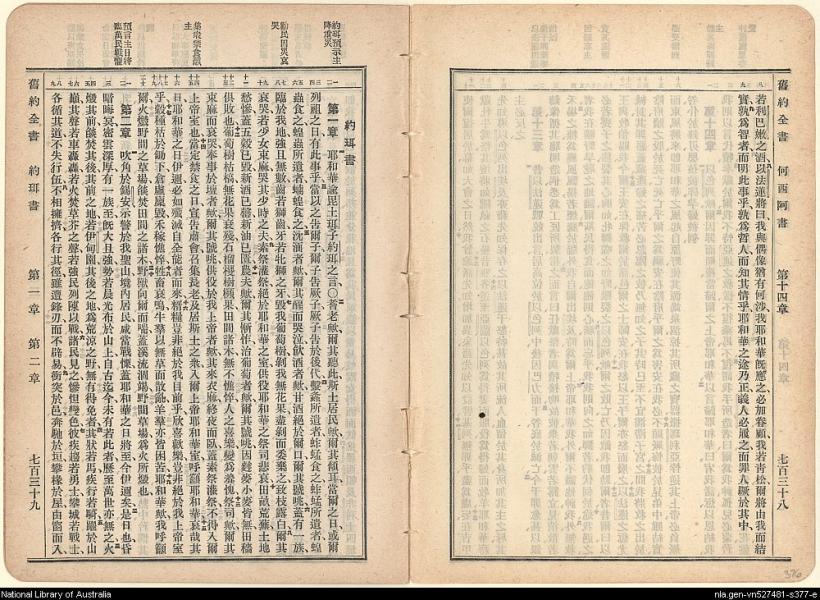 舊約全書 何西阿書 第十四章 七百三十八
若利巴嫩之酒、以法蓮將曰、我與偶像猶有何涉、我耶和華旣應之、必加眷顧、我若青松、爾將由我而結
實、孰爲智者、而明此事乎、孰爲哲人、而知其情乎、耶和華之途乃正、義人必履之、而罪人蹶於其中、
約珥預示主
降重災
勸民因災哀
哭
集衆禁食籲
主
預言主日將
臨萬民戰慄
約珥書
第一章 耶和華諭毘土珥子約珥之言、〇耆老歟、爾其聽此、斯土居民歟、爾其傾耳、當爾之日、或爾
列祖之日、有此事乎、當以之告爾子、爾子告厥子、厥子告於後代、螽所遺者、蚱蜢食之、蚱蜢所遺者、蝗
蟲食之、蝗蟲所遺者、食之、沈湎者歟、爾其醒而哭泣、飲酒者歟、甘酒絕於爾口、爾其號咷、蓋有一族、
臨於我地、強且無數、齒若獅齒、牙若牝獅之牙、毀我葡萄樹、剝我無花果、盡剝而委棄之、致枝露白、爾其
哀哭、若少女束麻、哭其少時之夫、素祭灌祭、絕於耶和華之室、供役耶和華之祭司悲哀、田畝荒蕪、土地
愁慘、蓋五穀已毀、新酒已罄、新油已匱、農夫歟、爾其慚怍、治葡萄者歟、爾其號咷、因麰麥小麥皆無、田穡
俱敗也、葡萄樹枯槁、無花果衰殘、石榴椶樹頻果、田間諸木、無不憔悴、人之喜樂、變爲羞愧、祭司歟、爾其
束麻而哀哭、奉事於壇者歟、爾其號咷、供役於我上帝者歟、其來衣麻、終夜而臥、蓋素祭灌祭、不得入爾
上帝室也、當定禁食之日、宣告肅會、召集長老及居斯土之衆、入爾上帝耶和華室、呼籲耶和華、哀哉其
日、耶和華之日伊邇、必如殲滅、自全能者而來、糈糧豈非絕於我目前乎、欣喜歡樂、豈非絕於我上帝室
乎、穀種枯於鋤下、倉廬虛、廩毀、禾稼憔悴、牲畜哀鳴、牛羣以無草而散、羊羣亦皆困苦、耶和華歟、我呼籲
爾、火燬野間之草場、燄焚田間之諸木、野獸向爾而喘、蓋溪流涸竭、野間草場爲火所燬也、
第二章 吹角於錫安、示警於我聖山、境內居民、咸當戰慄、蓋耶和華之日將至、今伊邇矣、是日也、昏
暗晦冥、密雲深厚、有一族至、旣大且強、勢若晨光、布於山上、自古迄今、未有若此者、歷至萬世、亦無之、火
燬其前、燄焚其後、其前之地若伊甸園、其後之地爲荒涼之野、無有得免者、其狀若馬、疾行若騎、躍於山
巔、其聲若車轟轟、若火焚草芥之聲、若強民列陳以戰、諸民見之慘怛、變色、彼疾趨若勇士、攀城若戰士、
各循其道、不失行伍、不相擁擠、各行其徑、雖遭鋒刃、而不辟易、衝突於邑、奔馳於垣、攀緣於屋、由窗而入、
舊約全書 約珥書 第一章 第二章 七百三十九
376
National Library of Australia
nla.gen-vn527481-s377-e